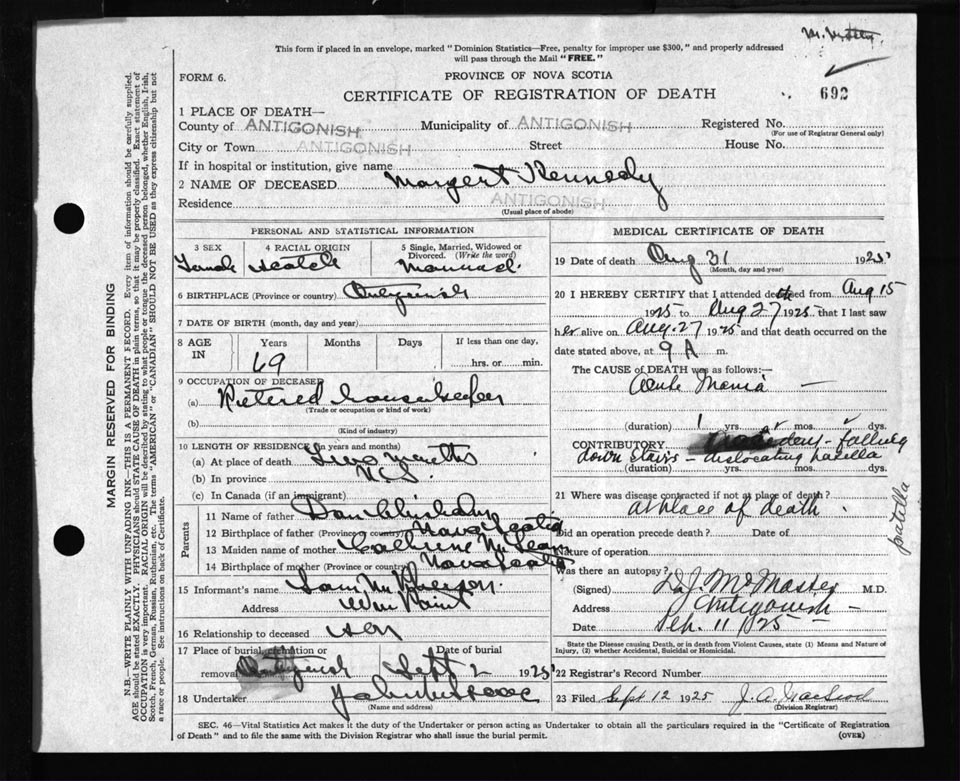 This form if placed in an envelope, marked "Dominion Statistics—Free, penalty for improper use $300," and properly addressed
will pass through the Mail "FREE."
FORM 6.
PROVINCE OF NOVA SCOTIA
CERTIFICATE OF REGISTRATION OF DEATH
692
1 PLACE OF DEATH—
County of ANTIGONISH Municipality of ANTIGONISH Registered No.
(For use of Registrar General only)
City or Town ANTIGONISH Street House No.
If in hospital or institution, give name
2 NAME OF DECEASED Margert Kennedy
Residence ANTIGONISH
(Usual place of abode)
PERSONAL AND STATISTICAL INFORMATION
3 SEX 4 RACIAL ORIGIN 5 Single, Married, Widowed or Divorced. (Write the word)
Female Scotch Married
6 BIRTHPLACE (Province or country) Antigonish
7 DATE OF BIRTH (month, day and year)
8 AGE IN Years Months Days If less than one day,
69 hrs. or min.
9 OCCUPATION OF DECEASED
(a) Retered housekeeper
(Trade or occupation or kind of work)
(b)
(Kind of industry)
10 LENGTH OF RESIDENCE (in years and months)
(a) At place of death Two months
(b) In province N.S.
(c) In Canada (if an immigrant)
Parents
11 Name of father Dan Chisholm
12 Birthplace of father (Province or country) Nova Scotia
13 Maiden name of mother Catherine McLean
14 Birthplace of mother (Province or country) Nova Scotia
15 Informant's name
Address
16 Relationship to deceased son
17 Place of burial, cremation or removal Date of burial
Antigonish Sept 2 1925
18 Undertaker
(Name and address)
MEDICAL CERTIFICATE OF DEATH
19 Date of death Aug 31 1925
(Month, day and year)
20 I HEREBY CERTIFY that I attended deceased from Aug 15
1925 to Aug 27 1925 that I last saw
her alive on Aug. 27 1925 and that death occurred on
date stated above, at 9 A m.
The CAUSE of DEATH was as follows:—
Acute Mania —
(duration) 1 yrs. mos. dys.
CONTRIBUTORY falling
down stairs – dislocating
(duration) yrs. mos. dys.
patella
21 Where was disease contracted if not at place of death?
at place of death
Did an operation precede death? Date of
Nature of operation
Was there an autopsy?
(Signed) D.J. McMaster M.D.
Address Antigonish
Date Sep. 11 / 25
State the Disease causing Death, or in death from Violent Causes, state (1) Means and Nature of
Injury, (2) whether Accidental, Suicidal or Homicidal.
22 Registrar's Record Number
23 Filed Sept 12 1925 J. A. MacLeod
(Division Registrar)
SEC. 46—Vital Statistics Act makes it the duty of the Undertaker or person acting as Undertaker to obtain all the particulars required in the "Certificate of Registration
of Death" and to file the same with the Division Registrar who shall issue the burial permit.
(OVER)
MARGIN RESERVED FOR BINDING
N.B.—WRITE PLAINLY WITH UNFADING INK—THIS IS A PERMANENT RECORD. Every item of information should be carefully supplied.
AGE should be stated EXACTLY. PHYSICIANS should STATE CAUSE OF DEATH in plain terms, so that it may be properly classified. Exact statement of
OCCUPATION is very important. RACIAL ORIGIN will be described by stating to what people or tongue the deceased person belonged, whether English, Irish,
Scotch, French, German, Russian, Ruthenian, etc. The terms "AMERICAN" or "CANADIAN" SHOULD NOT BE USED as they express citizenship but not
a race or people. See instructions on back of Certificate.